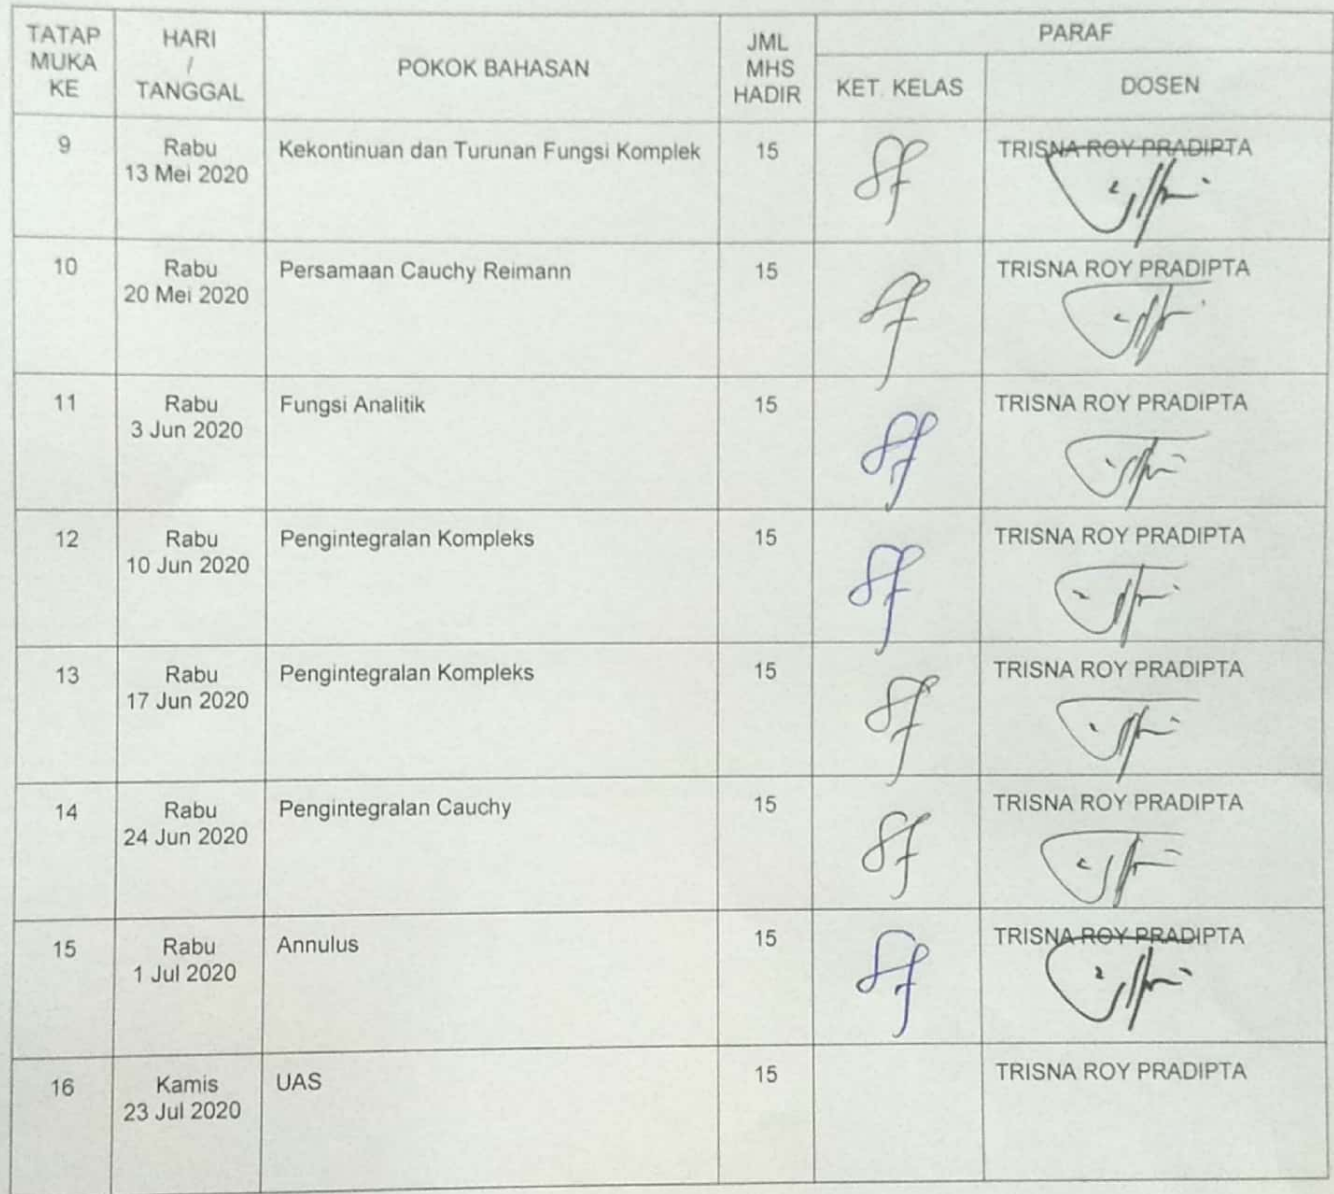 TATAP
MUKA
KE
HARI
/
TANGGAL
POKOK BAHASAN
JML
MHS
HADIR
PARAF
KET. KELAS
DOSEN
9
Rabu
13 Mei 2020
Kekontinuan dan Turunan Fungsi Komplek
15
TRISNA ROY PRADIPTA
10
Rabu
20 Mei 2020
Persamaan Cauchy Reimann
15
TRISNA ROY PRADIPTA
11
Rabu
3 Jun 2020
Fungsi Analitik
15
TRISNA ROY PRADIPTA
12
Rabu
10 Jun 2020
Pengintegralan Kompleks
15
TRISNA ROY PRADIPTA
13
Rabu
17 Jun 2020
Pengintegralan Kompleks
15
TRISNA ROY PRADIPTA
14
Rabu
24 Jun 2020
Pengintegralan Cauchy
15
TRISNA ROY PRADIPTA
15
Rabu
1 Jul 2020
Annulus
15
TRISNA ROY PRADIPTA
16
Kamis
23 Jul 2020
UAS
15
TRISNA ROY PRADIPTA